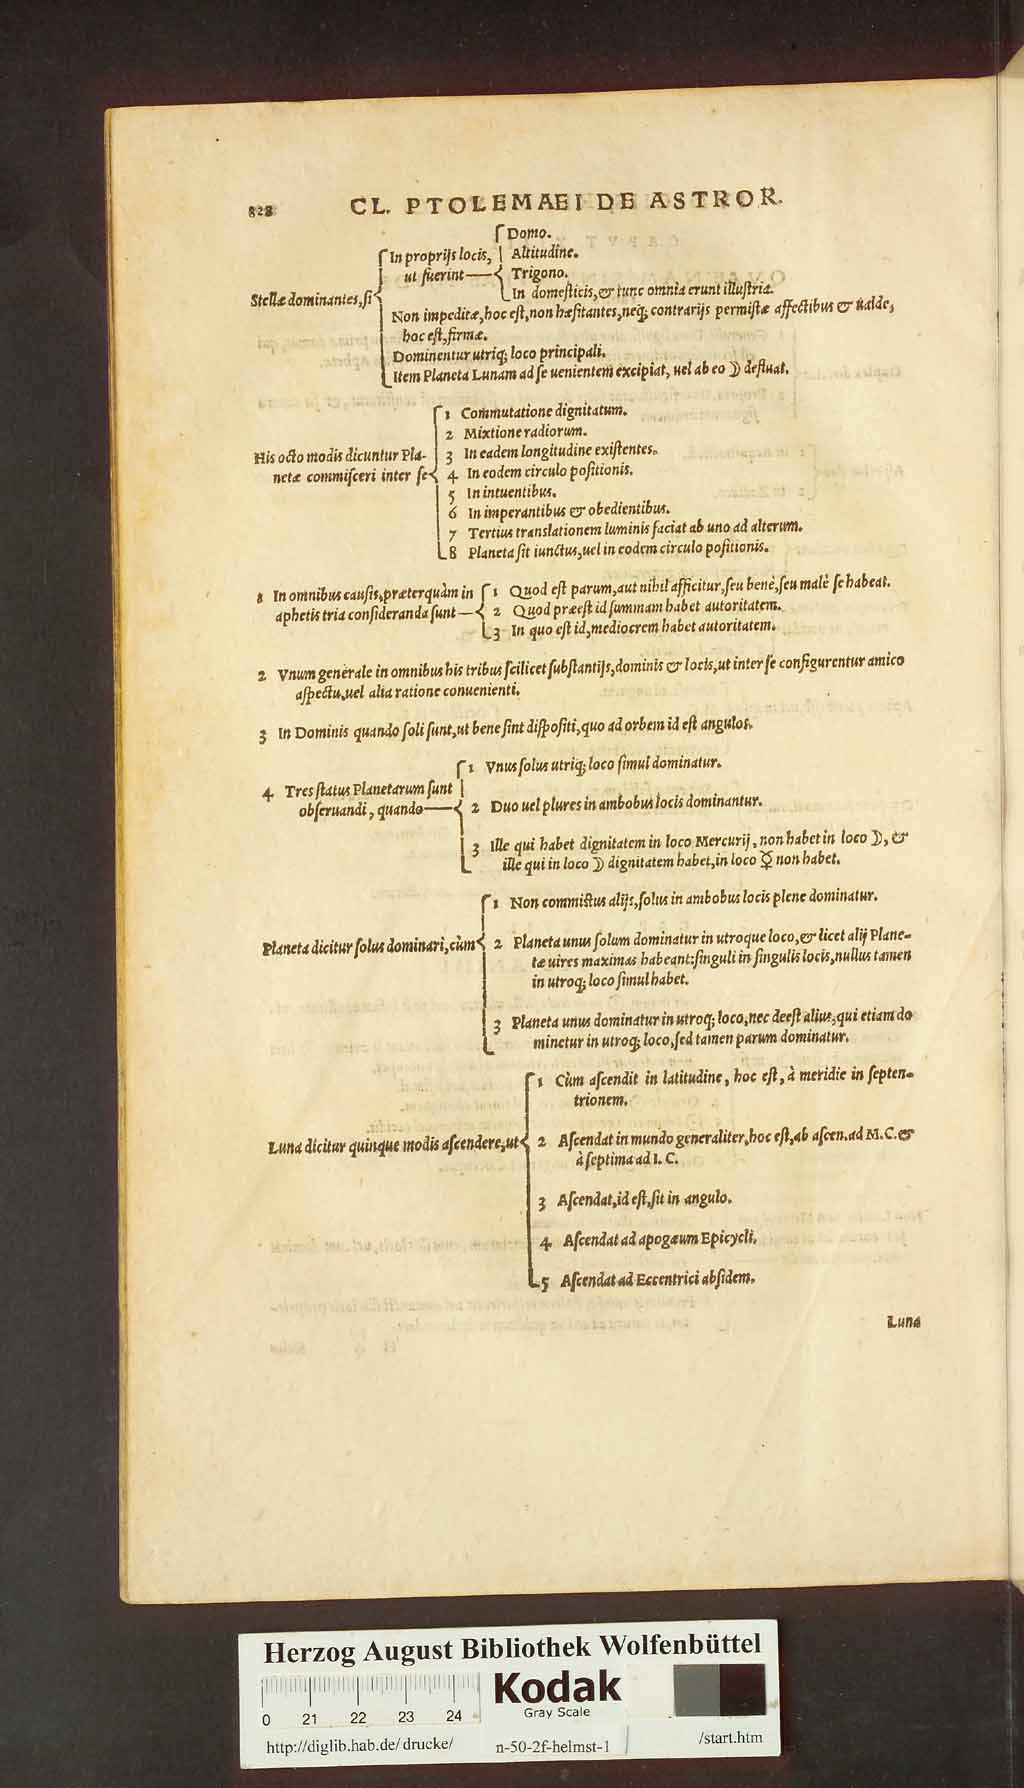 828 CL. PTOLEMAEI DE ASTROR.
Domo.
In proprijs locis, Altitudine.
ut fuerint Trigono.
In domesticis, & tunc omnia erunt illustria.
Stellæ dominantes, si
Non impeditæ, hoc est, non hæsitantes, neq; contrarijs permistæ affectibus & ualde,
hoc est, firmæ.
Dominentur utriq; loco principali.
Item Planeta Lunam ad se uenientem excipiat, uel ab eo ☽ defluat.
His octo modis dicuntur Pla-
netæ commisceri inter se
1 Commutatione dignitatum.
2 Mixtione radiorum.
3 In eadem longitudine existentes.
4 In eodem circulo positionis.
5 In intuentibus.
6 In imperantibus & obedientibus.
7 Tertius translationem luminis faciat ab uno ad alterum.
8 Planeta sit iunctus, uel in eodem circulo positionis.
1 In omnibus causis, præterquàm in
aphetis tria consideranda sunt
1 Quod est parum, aut nihil afficitur, seu benè, seu malè se habeat.
2 Quod præest id summam habet autoritatem.
3 In quo est id, mediocrem habet autoritatem.
2 Vnum generale in omnibus his tribus scilicet substantijs, dominis & locis, ut inter se configurentur amico
aspectu, uel alia ratione conuenienti.
3 In Dominis quando soli sunt, ut bene sint dispositi, quo ad orbem id est angulos.
4 Tres status Planetarum sunt
obseruandi, quando
1 Vnus solus utriq; loco simul dominatur.
2 Duo uel plures in ambobus locis dominantur.
3 Ille qui habet dignitatem in loco Mercurij, non habet in loco ☽, &
ille qui in loco ☽ dignitatem habet, in loco ☿ non habet.
Planeta dicitur solus dominari, cùm
1 Non commistus alijs, solus in ambobus locis plene dominatur.
2 Planeta unus solum dominatur in utroque loco, & licet alij Plane-
tæ uires maximas habeant: singuli in singulis locis, nullus tamen
in utroq; loco simul habet.
3 Planeta unus dominatur in utroq; loco, nec deest alius, qui etiam do
minetur in utroq; loco, sed tamen parum dominatur.
Luna dicitur quinque modis ascendere, ut
1 Cùm ascendit in latitudine, hoc est, à meridie in septen-
trionem.
2 Ascendat in mundo generaliter, hoc est, ab ascen. ad M.C. &
à septima ad I. C.
3 Ascendat, id est, sit in angulo.
4 Ascendat ad apogæum Epicycli.
5 Ascendat ad Eccentrici absidem.
Luna
Herzog August Bibliothek Wolfenbüttel
Kodak
Gray Scale
0 21 22 23 24
http://diglib.hab.de/drucke/ n-50-2f-helmst-1 /start.htm